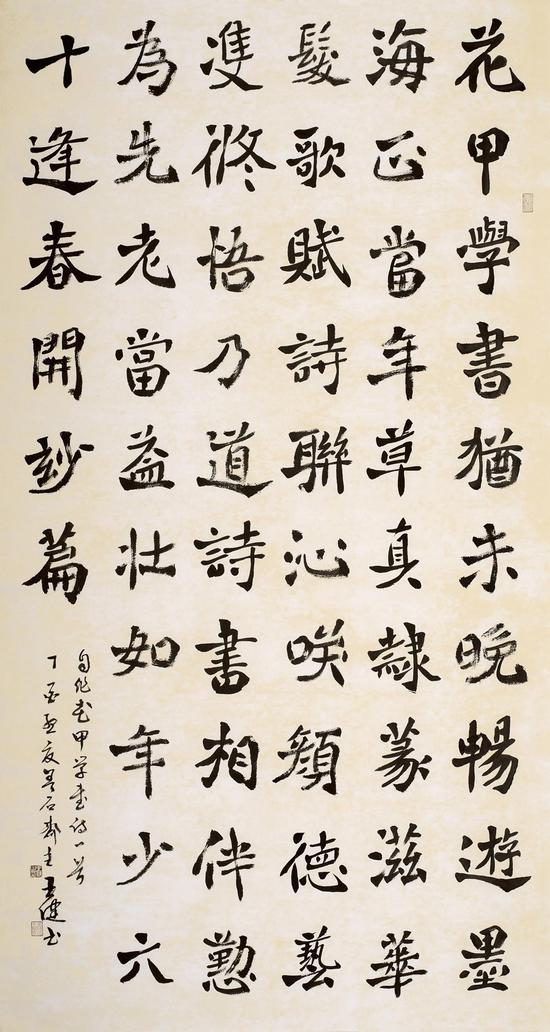 花甲學書猶未晚暢遊墨
海正當年草真隸篆滋華
髮歌賦詩聯沁咲顏德藝
雙修悟乃道詩書相伴懃
為先老當益壯如年少六
十逢春開玅篇
自作花甲学書詩一首
丁酉孟夏石主王健书